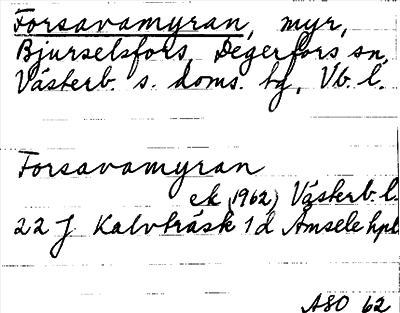 Forsavamyran, myr,
Bjurselsfors, Degerfors sn,
Västerb. s. doms. tg, Vb. l.
Forsavamyran
ek (1962) Västerb. l.
22 J Kalvträsk 1 d Amsele hpl
ASO 62